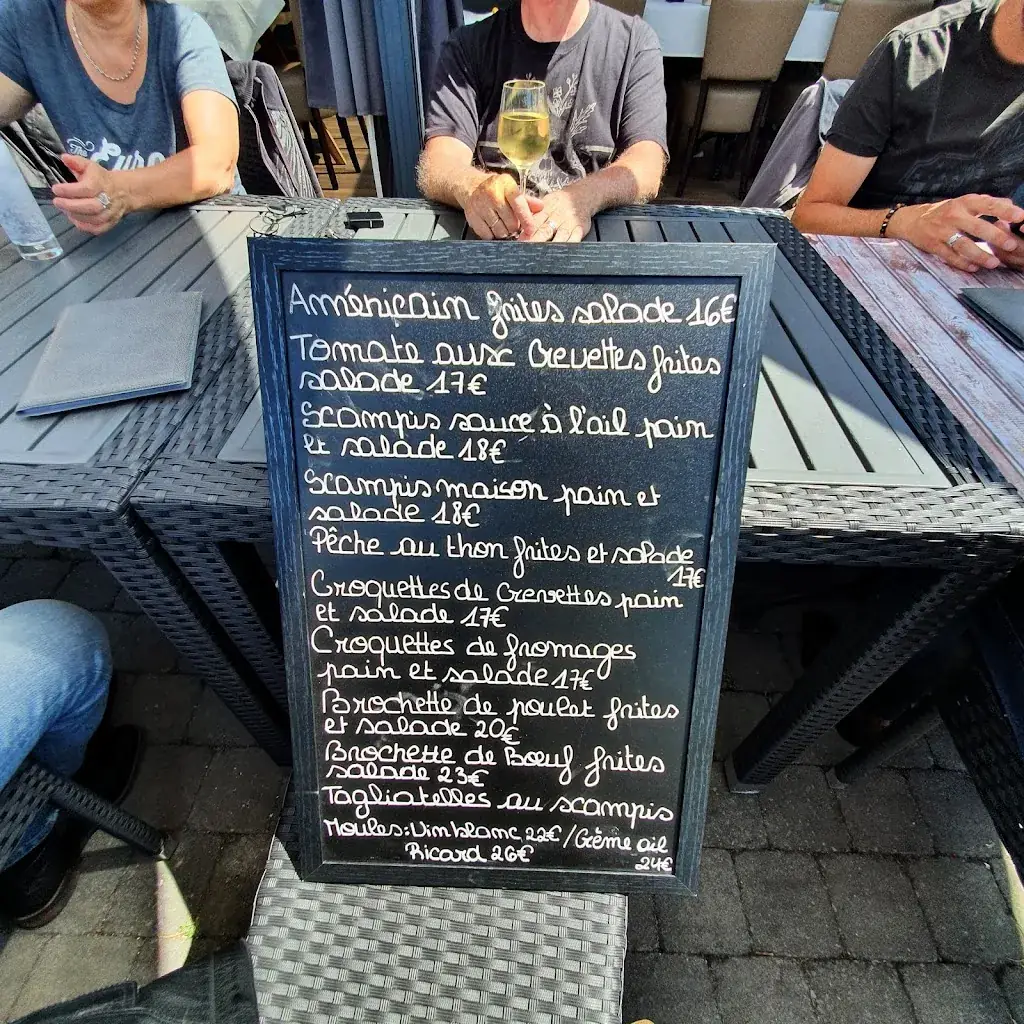 Américain frites salade 16€
Tomate aux Crevettes frites
salade 17€
Scampis sauce à l'ail pain
et salade 18€
Scampis maison pain et
salade 18€
Pêche au thon frites et salade
17€
Croquettes de Crevettes pain
et salade 17€
Croquettes de fromages
pain et salade 17€
Brochette de poulet frites
et salade 20€
Brochette de Bœuf frites
salade 23€
Tagliatelles au scampis
Moules: Vin blanc 22€ / Crème ail
Ricard 26€ 24€